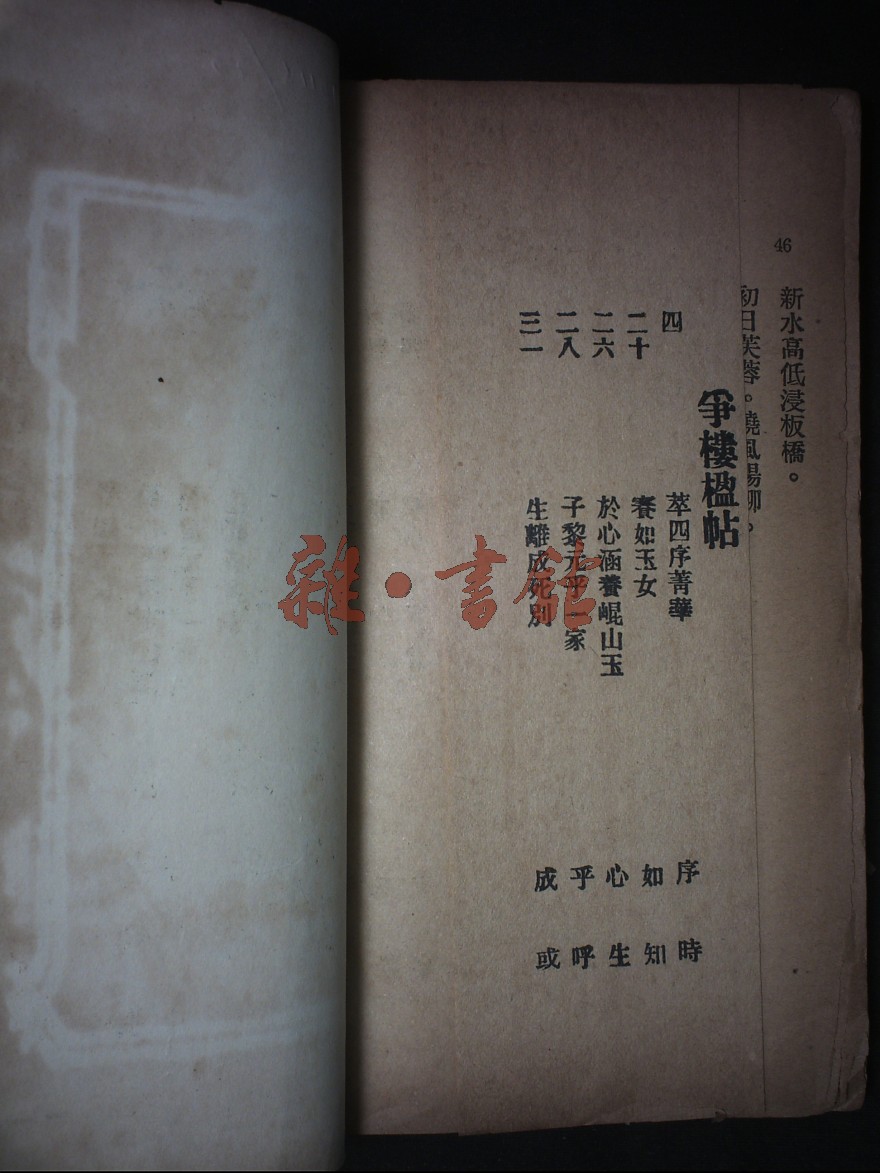 46
新水高低浸板橋。
初日芙蓉。曉風楊柳。
爭樓楹帖
四 萃四序菁華 序 時
二十 養如玉女 如 知
二六 於心涵養崐山玉 心 生
二八 子黎元乎一家 乎 呼
三一 生離成死別 成 或
雜·書館